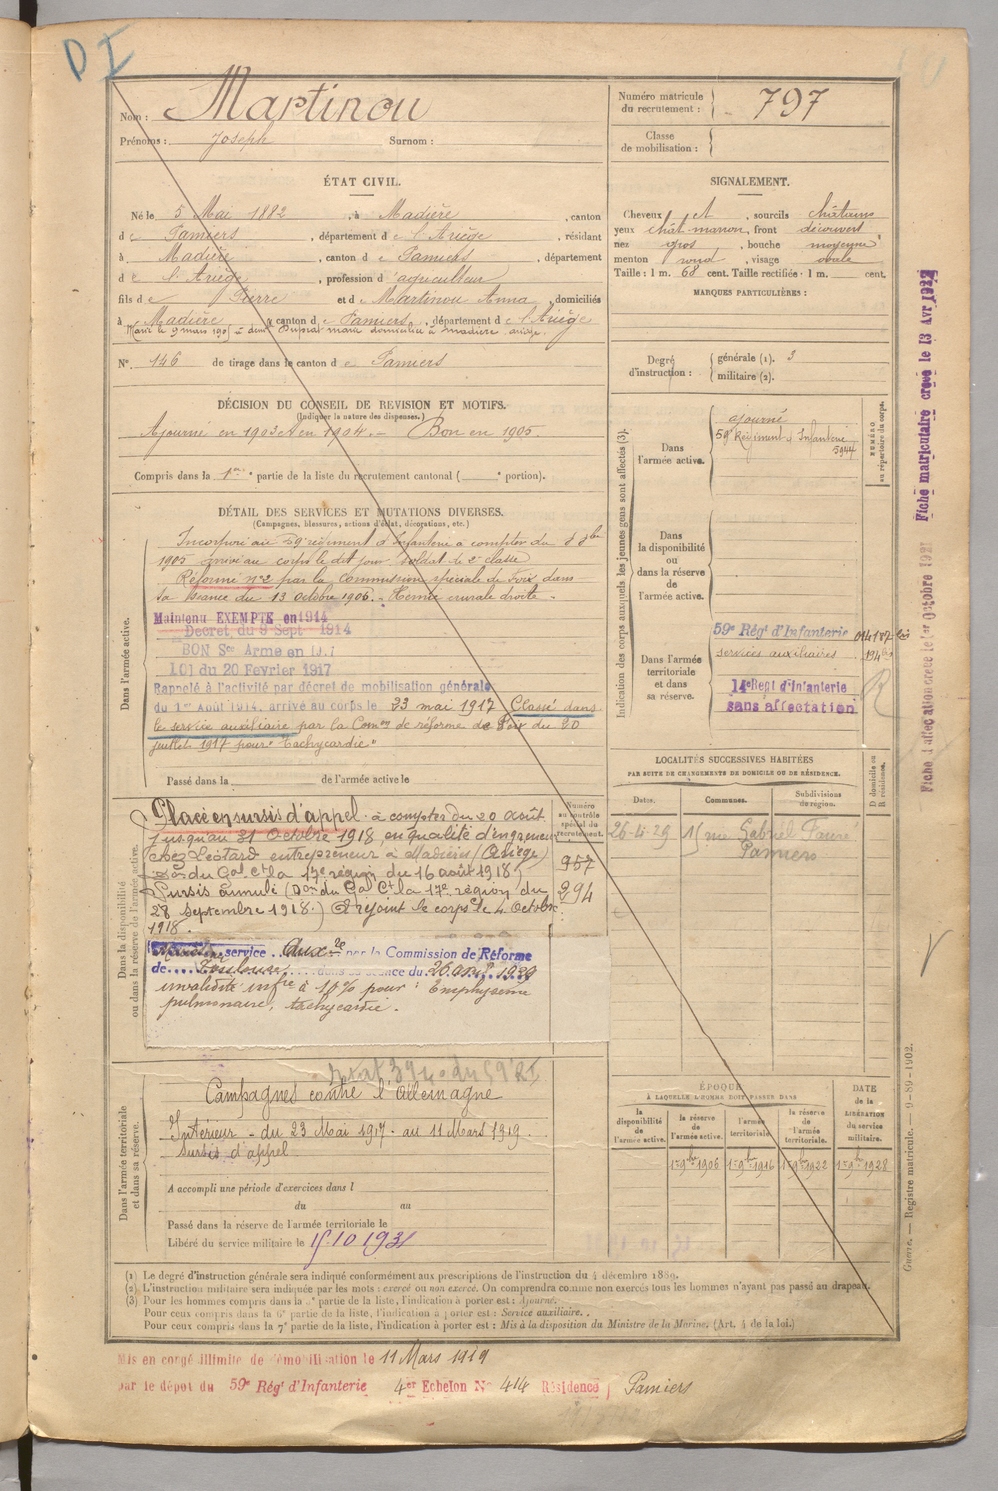 D I
Nom : Martinou
Prénoms : Joseph Surnom :
Numéro matricule du recrutement : 797
Classe de mobilisation :
ÉTAT CIVIL.
Né le 5 Mai 1882, à Madière, canton
de Pamiers, département de l'Ariège, résidant
à Madière, canton de Pamiers, département
de l'Ariège, profession d'agriculteur
fils de Pierre et de Martinou Anna, domiciliés
à Madière, canton de Pamiers, département de l'Ariège
Marié le 9 mars 1905 à demlle Marie domiciliée à Madière Ariège.
N° 146 de tirage dans le canton de Pamiers
SIGNALEMENT.
Cheveux et, sourcils châtains
yeux chât marron, front découvert
nez gros, bouche moyenne
menton rond, visage ovale
Taille : 1 m. 68 cent. Taille rectifiée : 1 m. cent.
MARQUES PARTICULIÈRES :
Degré d'instruction : générale (1). 3
militaire (2).
DÉCISION DU CONSEIL DE REVISION ET MOTIFS.
(Indiquer la nature des dispenses.)
Ajourné en 1903 et en 1904. - Bon en 1905.
Compris dans la 1ère partie de la liste du recrutement cantonal ( portion).
DÉTAIL DES SERVICES ET MUTATIONS DIVERSES.
(Campagnes, blessures, actions d'éclat, décorations, etc.)
Dans l'armée active.
Incorporé au 59e régiment d'Infanterie à compter du 8 8bre
1905 arrivé au corps le dit jour soldat de 2e classe
Réformé n°2 par la Commission spéciale de Foix dans
sa séance du 13 Octobre 1906. - Hernie crurale droite.
Maintenu EXEMPTE en 1914
Décret du 9 Sept 1914
BON Sce Armé en 1917
101 du 20 Fevrier 1917
Rappelé à l'activité par décret de mobilisation générale
du 1er Août 1914, arrivé au corps le 23 mai 1917 Classé dans
le service auxiliaire par la Comon de réforme de Foix du 20
juillet 1917 pour "tachycardie"
Passé dans la de l'armée active le
Indication des corps auxquels les jeunes gens sont affectés (3).
NUMÉRO au répertoire du corps.
Dans l'armée active.
ajourné
59e Régiment d'Infanterie
5944
Dans la disponibilité ou dans la réserve de l'armée active.
Dans l'armée territoriale et dans sa réserve.
59e Régt d'Infanterie 014187 bis
services auxiliaires
14e Regt d'Infanterie
sans affectation
R
Dans la disponibilité ou dans la réserve de l'armée active.
Numéro au contrôle spécial du recrutement.
Placé en sursis d'appel à compter du 20 août
jusqu'au 31 Octobre 1918, en qualité d'ingreneur
chez Léotard entrepreneur à Madière (Ariège)
Don du Gal Ct la 17e région du 16 août 1918)
Sursis annulé (Don du Gal Ct la 17e région du
28 septembre 1918.) A rejoint le corps le 4 Octobre
1918.
957
294
service Auxre par la Commission de Réforme
de Toulouse dans sa séance du 26 avril 1929
invalidité infre à 10% pour : Emphysème
pulmonaire, tachycardie.
LOCALITÉS SUCCESSIVES HABITÉES
PAR SUITE DE CHANGEMENTS DE DOMICILE OU DE RÉSIDENCE.
Dates. Communes. Subdivisions de région. D domicile ou R résidence.
26-4-29 15 rue Gabriel Fauré
Pamiers
Dans l'armée territoriale et dans sa réserve.
Campagnes contre l'Allemagne
Intérieur - du 23 Mai 1917 - au 11 Mars 1919.
sursis d'appel
A accompli une période d'exercices dans l
du au
Passé dans la réserve de l'armée territoriale le
Libéré du service militaire le 15.10.1931
ÉPOQUE
À LAQUELLE L'HOMME DOIT PASSER DANS
la disponibilité de l'armée active.
la réserve de l'armée active.
l'armée territoriale.
la réserve de l'armée territoriale.
DATE de la LIBÉRATION du service militaire.
1er 9bre 1906 1er 9bre 1916 1er 9bre 1922 1er 9bre 1928
(1) Le degré d'instruction générale sera indiqué conformément aux prescriptions de l'instruction du 4 décembre 1889.
(2) L'instruction militaire sera indiquée par les mots : exercé ou non exercé. On comprendra comme non exercés tous les hommes n'ayant pas passé au drapeau.
(3) Pour les hommes compris dans la 5e partie de la liste, l'indication à porter est : Ajourné.
Pour ceux compris dans la 6e partie de la liste, l'indication à porter est : Service auxiliaire.
Pour ceux compris dans la 7e partie de la liste, l'indication à porter est : Mis à la disposition du Ministre de la Marine. (Art. 4 de la loi.)
Mis en congé illimité de démobilisation le 11 Mars 1919
par le dépôt du 59e Régt d'Infanterie 4er Echelon N° 414 Résidence Pamiers
Fiche d'affectation créée le 1er Octobre 1921
Fiche matriculaire créée le 13 Avr 1932
Guerre. — Registre matricule. — 9-89-1902.